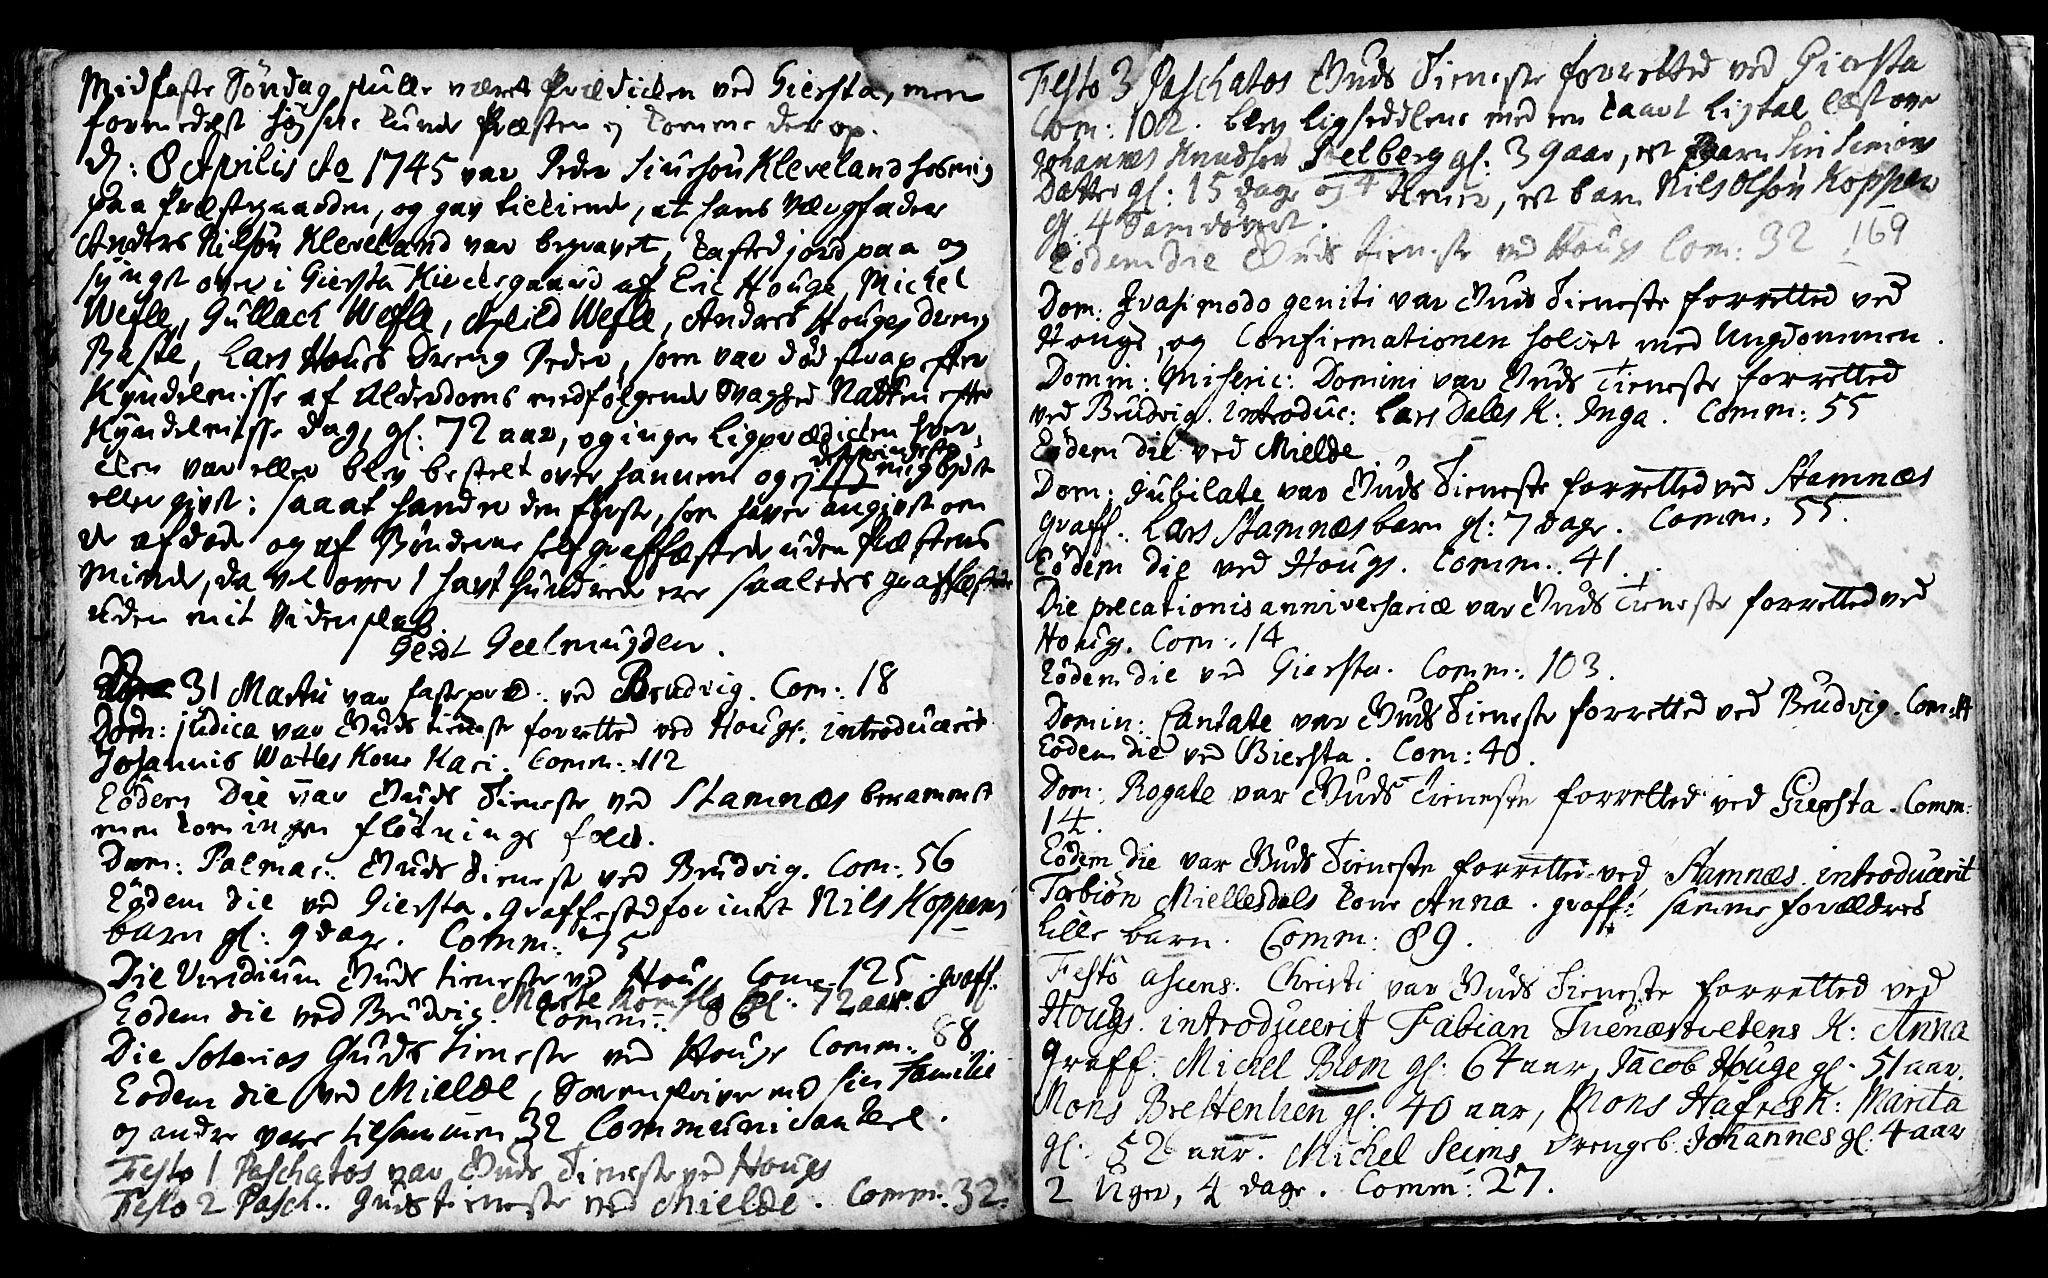 Midfaste Söndag skulle været Prædicken ved Giersta, men
formedelst høj snee kunde Præsten ej komme der op.
D: 8 Aprilis Ao 1745 var Peder Siursön Kleveland hos mig
paa Præstegaarden, og gav tilkiende, at hans Værgfader
Anders Nilsön Kleveland var begravet, kasted jord paa og
syngt over i Giersta Kirckegaard af Eric Houge, Michel
Wefle, Gullach Wefle, Wefle, Anders Houges dreng
Baste, Lars Houes Dreng Peder, som var död strax efter
Kyndelmisse af Alderdoms medfølgende Svaghed Natten efter
Kyndelmisse dag, gl: 72 aar, og ingen Ligprædicken hver-
cken var eller blev bestelt over hannem og ej det mindste mig bydet
eller givet: saa at hand er den første, som haver angivet om
de afdøde og af Bönderne self graffæstede uden Præstens
minde, da vel over 1 havt hundrede ere saaledes graffæstede
uden mit Videnskab.
Gerdt Geelmuyden.
31 Martii var fastepræd: ved Brudvig. Com: 18
Dom: judica var Guds tieneste forretted ved Hougs. introducerit
Johannis Watles Kone Kari. Comm: 112
Eodem Die var Guds Tieneste ved Stamnæs berammet
men kom ingen flötnings folck.
Dom: Palmar: Guds Tieneste ved Brudvig. Com: 56
Eodem die ved Giersta. Graffested forinket Nils Koppens
barn gl: 9 dage. Comm: 75
Die Viridium Guds tieneste ved Houg Com: 125. graff:
Eodem die ved Brudvig. Comm: 86 Marte gl: 72 aar.
Die Soterias Guds tieneste ved Houge Comm: 88
Eodem die ved Mielde, Sorenskriver med sin Familie
og andre vare tilsammen 32 Communicantere.
Festo 1 Paschatos var Guds Tieneste ved Hougs
Festo 2 Pasch: Guds tieneste ved Mielde. Comm: 32.
Festo 3 Paschatos Guds Tieneste forretted ved Giersta
Com: 102. blev ligseddlene med en kaart Ligtal læst over
Johannes Knudsen Selberg gl: 39 aar, et Barn Siri Simons
Datter gl: 15 dage og 4 Uger, et barn Nils Olsön Koppen
gl. 4
Eodem die Guds tieneste ved Hougs Com: 32 169
Dom: Qvasimodo geniti var Guds Tieneste forretted ved
Hougs, og Confirmationen holdet med Ungdommen.
Domin: Miseric: Domini var Guds Tieneste forretted
ved Brudvig. introduc: Lars Dales K: Inga. Comm: 55
Eodem die ved Mielde
Dom: Jubilate var Guds Tieneste forretted ved Stamnæs
Graff: Lars Stamnæs barn gl: 7 dage. Comm: 55.
Eodem die ved Hougs. Comm: 41.
Die precationis anniversariæ var Guds Tieneste forretted ved
Hougs. Com: 14
Eodem die ved Giersta. Comm: 103.
Domin: Cantate var Guds Tieneste forretted ved Brudvig. Com:
Eodem die ved Giersta. Com: 40.
Dom: Rogate var Guds Tieneste forretted ved Giersta. Comm:
14.
Eodem die var Guds Tieneste forretted ved Stamnæs introducerit
Torbiön Miellesdals kone Anna. graff: samme forældres
lille barn. Comm: 89.
Festo ascens: Christi var Guds Tieneste forretted ved
Hougs. introducerit Fabian Tuenæstvetens K: Anna
Graff: Michel Blom gl: 64 aar, Jacob Houge gl: 51 aar.
Mons Brettenhen gl. 40 aar, Mons Hafres K: Marita
gl: 52 aar. Michel Seims Drengeb. Johannes gl: 4 aar
2 Uger, 4 dage. Comm: 27.